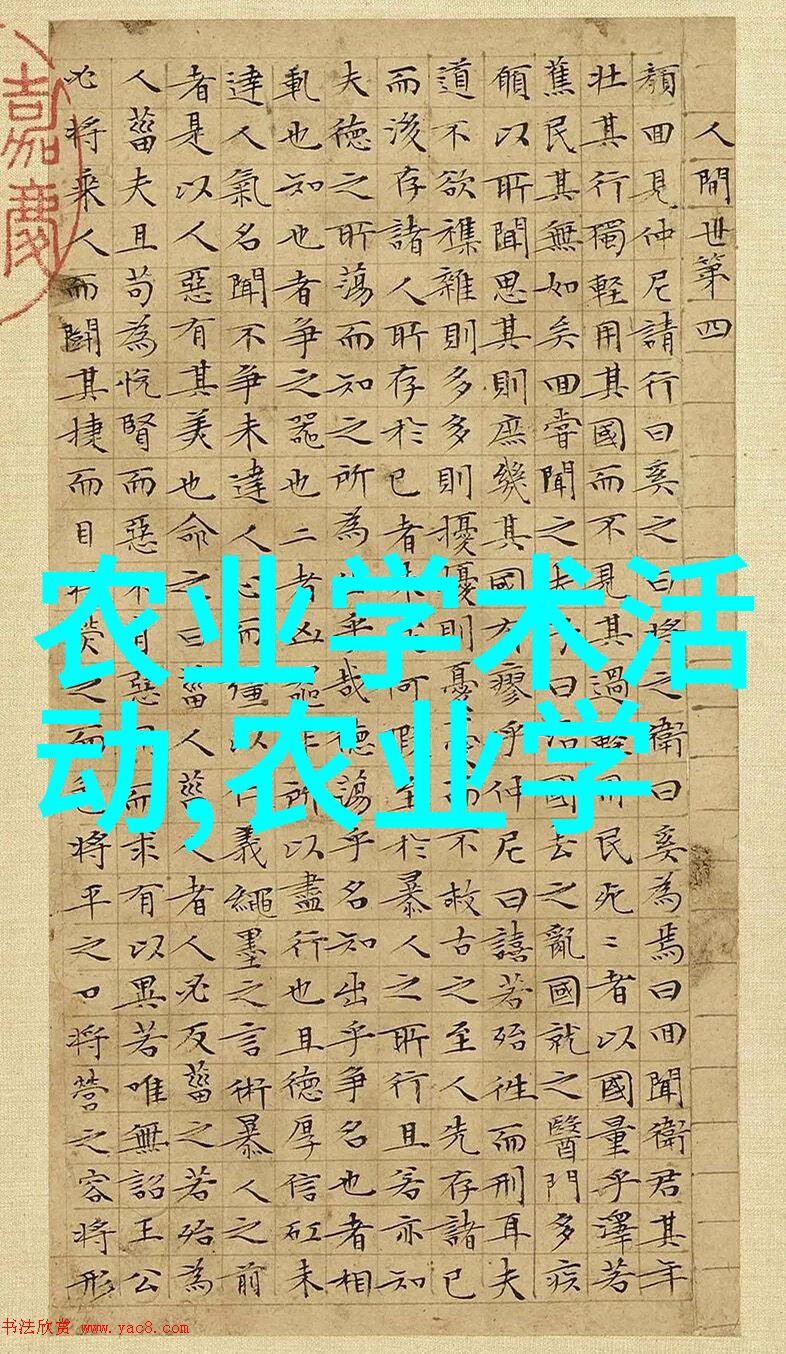 人間世第四
顏回見仲尼請行曰奚之曰將之衛曰奚為焉曰回聞衛君其年
壯其行獨輕用其國而不見其過輕用民死〻者以國量乎澤若
蕉民其無如矣回嘗聞之夫子曰治國去之亂國就之醫門多疾
願以所聞思其則庶幾其國有瘳乎仲尼曰譆若殆往而刑耳夫
道不欲襍雜則多多則擾擾則憂而不救古之至人先存諸已
而後存諸人所存於已者未何暇至於暴人之所行且若亦知
夫德之所蕩而知之所為出乎哉德蕩乎名知出乎爭名也者相
軋也知也者爭之器也二者凶器所以盡行也且德厚信矼未
達人氣名聞不爭未達人心而彊以仁義繩墨之言術暴人之前
者是以人惡有其美也命之曰菑人菑人者人必反菑之若殆為
人菑夫且苟為悅賢而惡不肖惡用而求有以異若唯無詔王公
必將乘人而鬪其捷而目將熒之而色將平之口將營之容將形
嘉慶
农业学术活
动,农业学
书法欣赏 www.yac8.com